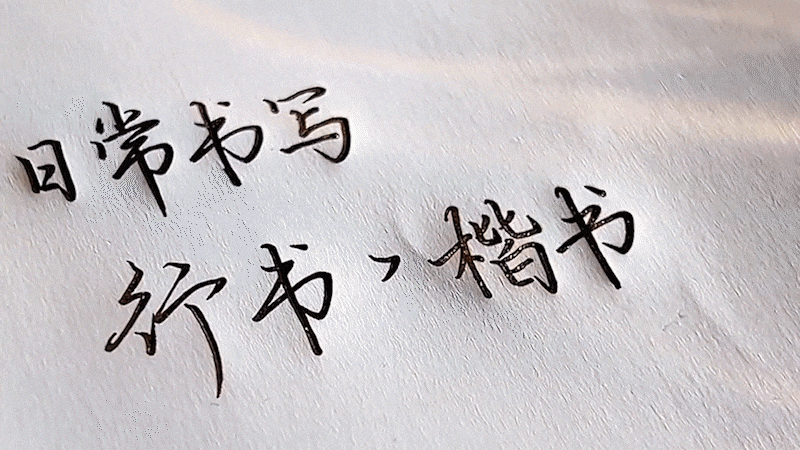 日常书写
行书、楷书